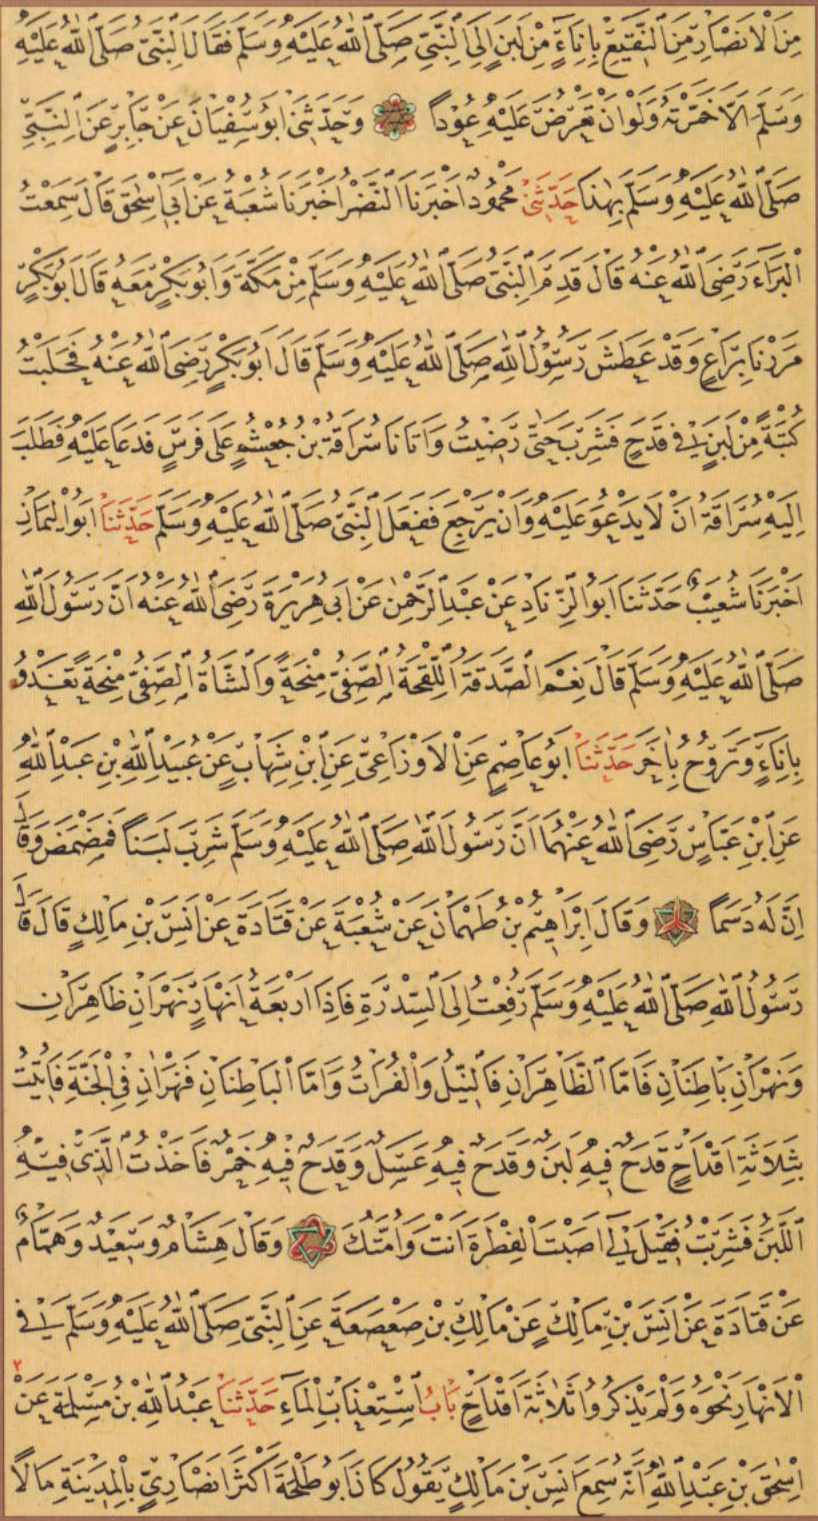 مِنَ الْاَنْصَارِ مِنَ النَّقِيعِ بِاِنَاءٍ مِنْ لَبَنٍ اِلَى النَّبِيِّ صَلَّى اللّٰهُ عَلَيْهِ وَسَلَّمَ فَقَالَ النَّبِيُّ صَلَّى اللّٰهُ عَلَيْهِ
وَسَلَّمَ اَلَّا خَمَّرْتَهُ وَلَوْ اَنْ تَعْرُضَ عَلَيْهِ عُوْدًا وَحَدَّثَنِي اَبُو سُفْيَانَ عَنْ جَابِرٍ عَنِ النَّبِيِّ
صَلَّى اللّٰهُ عَلَيْهِ وَسَلَّمَ بِهٰذَا حَدَّثَنِي مَحْمُودٌ اَخْبَرَنَا النَّضْرُ اَخْبَرَنَا شُعْبَةُ عَنْ اَبِي اِسْحٰقَ قَالَ سَمِعْتُ
الْبَرَاءَ رَضِيَ اللّٰهُ عَنْهُ قَالَ قَدِمَ النَّبِيُّ صَلَّى اللّٰهُ عَلَيْهِ وَسَلَّمَ مِنْ مَكَّةَ وَاَبُو بَكْرٍ مَعَهُ قَالَ اَبُو بَكْرٍ
مَرَرْنَا بِرَاعٍ وَقَدْ عَطِشَ رَسُوْلُ اللّٰهِ صَلَّى اللّٰهُ عَلَيْهِ وَسَلَّمَ قَالَ اَبُو بَكْرٍ رَضِيَ اللّٰهُ عَنْهُ فَحَلَبْتُ
كُثْبَةً مِنْ لَبَنٍ فِي قَدَحٍ فَشَرِبَ حَتّٰى رَضِيتُ وَاَتَانَا سُرَاقَةُ بْنُ جُعْشُمٍ عَلٰى فَرَسٍ فَدَعَا عَلَيْهِ فَطَلَبَ
اِلَيْهِ سُرَاقَةُ اَنْ لَا يَدْعُوَ عَلَيْهِ وَاَنْ يَرْجِعَ فَفَعَلَ النَّبِيُّ صَلَّى اللّٰهُ عَلَيْهِ وَسَلَّمَ حَدَّثَنَا اَبُو الْيَمَانِ
اَخْبَرَنَا شُعَيْبٌ حَدَّثَنَا اَبُو الزِّنَادِ عَنْ عَبْدِ الرَّحْمٰنِ عَنْ اَبِي هُرَيْرَةَ رَضِيَ اللّٰهُ عَنْهُ اَنَّ رَسُوْلَ اللّٰهِ
صَلَّى اللّٰهُ عَلَيْهِ وَسَلَّمَ قَالَ نِعْمَ الصَّدَقَةُ اللِّقْحَةُ الصَّفِيُّ مِنْحَةً وَالشَّاةُ الصَّفِيُّ مِنْحَةً تَغْدُو
بِاِنَاءٍ وَتَرُوْحُ بِاٰخَرَ حَدَّثَنَا اَبُو عَاصِمٍ عَنِ الْاَوْزَاعِيِّ عَنِ ابْنِ شِهَابٍ عَنْ عُبَيْدِ اللّٰهِ بْنِ عَبْدِ اللّٰهِ
عَنِ ابْنِ عَبَّاسٍ رَضِيَ اللّٰهُ عَنْهُمَا اَنَّ رَسُوْلَ اللّٰهِ صَلَّى اللّٰهُ عَلَيْهِ وَسَلَّمَ شَرِبَ لَبَنًا فَمَضْمَضَ وَقَالَ
اِنَّ لَهُ دَسَمًا وَقَالَ اِبْرَاهِيْمُ بْنُ طَهْمَانَ عَنْ شُعْبَةَ عَنْ قَتَادَةَ عَنْ اَنَسِ بْنِ مَالِكٍ قَالَ قَالَ
رَسُوْلُ اللّٰهِ صَلَّى اللّٰهُ عَلَيْهِ وَسَلَّمَ رُفِعْتُ اِلَى السِّدْرَةِ فَاِذَا اَرْبَعَةُ اَنْهَارٍ نَهْرَانِ ظَاهِرَانِ
وَنَهْرَانِ بَاطِنَانِ فَاَمَّا الظَّاهِرَانِ فَالنِّيْلُ وَالْفُرَاتُ وَاَمَّا الْبَاطِنَانِ فَنَهْرَانِ فِي الْجَنَّةِ فَاُتِيْتُ
بِثَلَاثَةِ اَقْدَاحٍ قَدَحٌ فِيْهِ لَبَنٌ وَقَدَحٌ فِيْهِ عَسَلٌ وَقَدَحٌ فِيْهِ خَمْرٌ فَاَخَذْتُ الَّذِي فِيْهِ
اللَّبَنُ فَشَرِبْتُ فَقِيْلَ لِي اَصَبْتَ الْفِطْرَةَ اَنْتَ وَاُمَّتُكَ وَقَالَ هِشَامٌ وَسَعِيْدٌ وَهَمَّامٌ
عَنْ قَتَادَةَ عَنْ اَنَسِ بْنِ مَالِكٍ عَنْ مَالِكِ بْنِ صَعْصَعَةَ عَنِ النَّبِيِّ صَلَّى اللّٰهُ عَلَيْهِ وَسَلَّمَ فِي
الْاَنْهَارِ نَحْوَهُ وَلَمْ يَذْكُرُوا ثَلَاثَةَ اَقْدَاحٍ بَابُ اسْتِعْذَابِ الْمَاءِ حَدَّثَنَا عَبْدُ اللّٰهِ بْنُ مَسْلَمَةَ عَنْ ٢
اِسْحٰقَ بْنِ عَبْدِ اللّٰهِ اَنَّهُ سَمِعَ اَنَسَ بْنَ مَالِكٍ يَقُوْلُ كَانَ اَبُو طَلْحَةَ اَكْثَرَ اَنْصَارِيٍّ بِالْمَدِيْنَةِ مَالًا